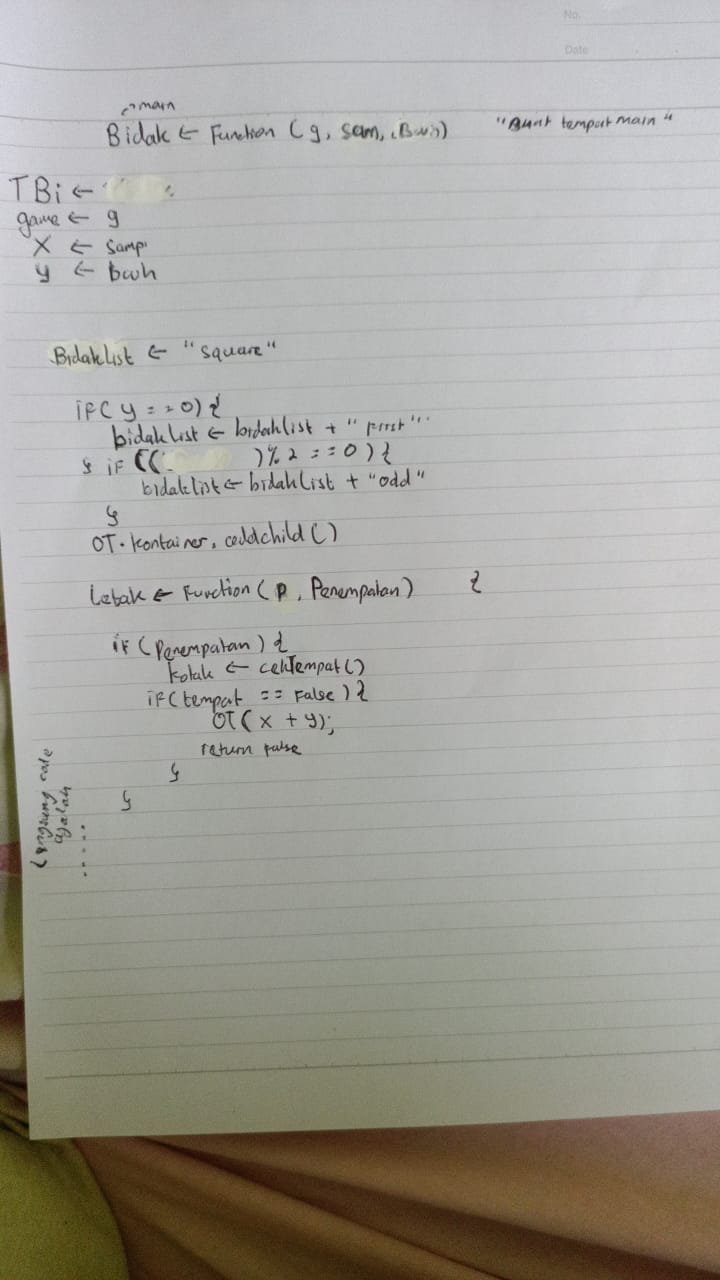 No.
Date
main
Bidak ← Function (g, sam, Bwh) "Buat tempat main"
TBi ←
game ← g
x ← samp
y ← bwh
Bidaklist ← "square"
if( y == 0) {
bidaklist ← bidaklist + "first"
} if (( )% 2 == 0) {
bidaklist ← bidaklist + "odd"
}
OT. kontainer. addchild ()
Letak ← Function (p, Penempatan) {
if (Penempatan) {
kotak ← cekTempat()
if(tempat == False) {
OT( x + y);
return false
}
}
Langsung code
ajalah
......